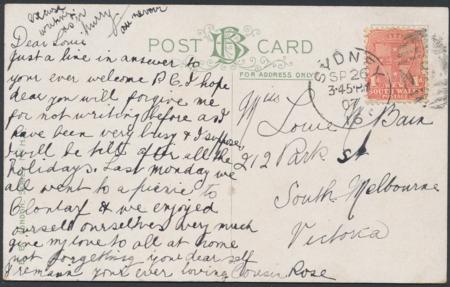 excuse
writing
as in
hurry
au revoir
Dear Louie
Just a line in answer to
your ever welcome P.C. I hope
dear you will forgive me
for not writing before as I
have been very busy & I suppose
will be till after all the
Holidays. Last monday we
all went to a picnic to
Clontarf & we enjoyed
ourself ourselves very much
give my love to all at home
not forgetting your dear self
I remain your ever loving Cousin Rose
POST CARD
B
FOR ADDRESS ONLY
SYDNEY
SP 26
3.45 PM
07
SOUTH WALES
Miss
Louie McBain
212 Park st
South Melbourne
Victoria